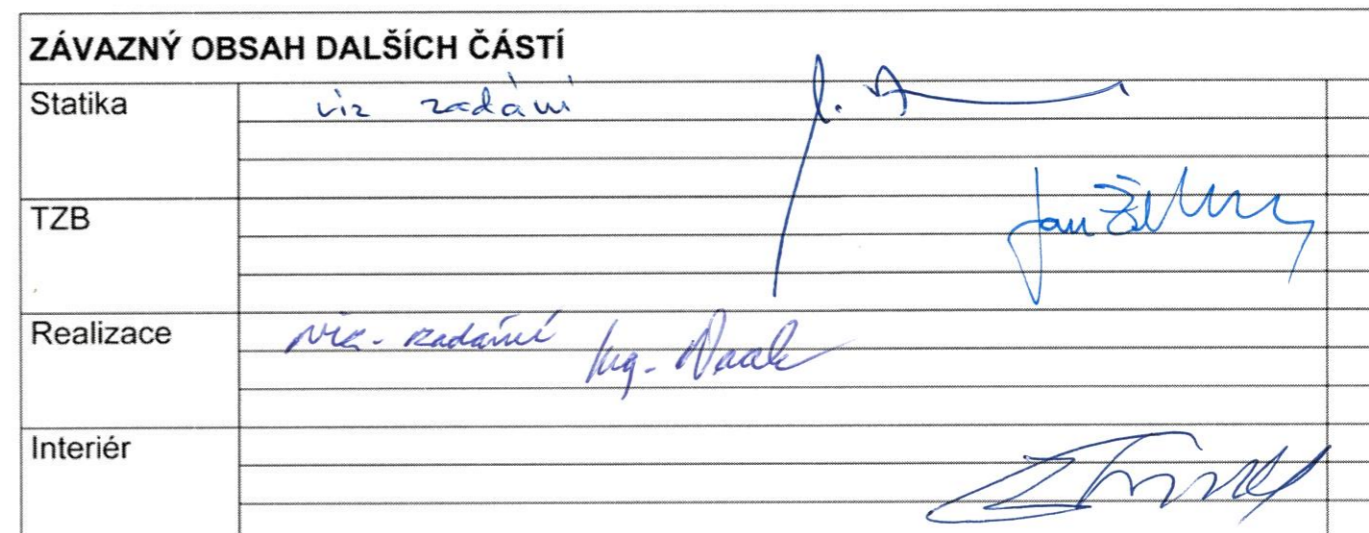 ZÁVAZNÝ OBSAH DALŠÍCH ČÁSTÍ
Statika viz zadání
TZB Jan
Realizace viz. zadání Ing.
Interiér